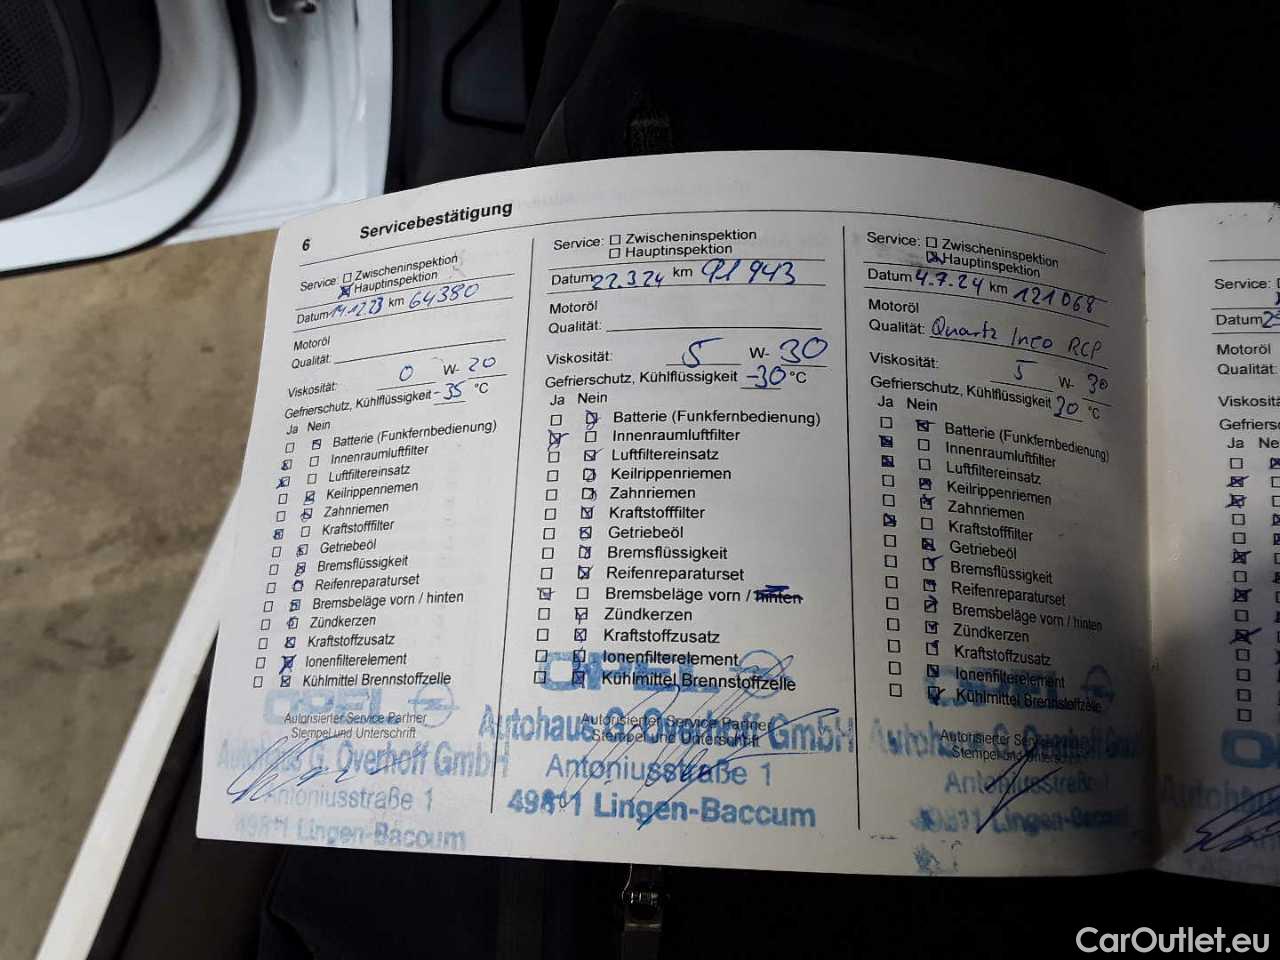 6 Servicebestätigung
Service: Zwischeninspektion
Hauptinspektion
Datum 14.12.23 km 64380
Motoröl
Qualität:
Viskosität: 0 W- 20
Gefrierschutz, Kühlflüssigkeit -35 °C
Ja Nein
Batterie (Funkfernbedienung)
Innenraumluftfilter
Luftfiltereinsatz
Keilrippenriemen
Zahnriemen
Kraftstofffilter
Getriebeöl
Bremsflüssigkeit
Reifenreparaturset
Bremsbeläge vorn / hinten
Zündkerzen
Kraftstoffzusatz
Ionenfilterelement
Kühlmittel Brennstoffzelle
OPEL
Autorisierter Service Partner
Stempel und Unterschrift
Autohaus G. Overhoff GmbH
Antoniusstraße 1
49811 Lingen-Baccum
Service: Zwischeninspektion
Hauptinspektion
Datum 22.3.24 km 91943
Motoröl
Qualität:
Viskosität: 5 W- 30
Gefrierschutz, Kühlflüssigkeit -30 °C
Ja Nein
Batterie (Funkfernbedienung)
Innenraumluftfilter
Luftfiltereinsatz
Keilrippenriemen
Zahnriemen
Kraftstofffilter
Getriebeöl
Bremsflüssigkeit
Reifenreparaturset
Bremsbeläge vorn / hinten
Zündkerzen
Kraftstoffzusatz
Ionenfilterelement
Kühlmittel Brennstoffzelle
OPEL
Autorisierter Service Partner
Stempel und Unterschrift
Autohaus G. Overhoff GmbH
Antoniusstraße 1
49811 Lingen-Baccum
Service: Zwischeninspektion
Hauptinspektion
Datum 4.7.24 km 121068
Motoröl
Qualität: Quartz Ineo RCP
Viskosität: 5 W- 30
Gefrierschutz, Kühlflüssigkeit 30 °C
Ja Nein
Batterie (Funkfernbedienung)
Innenraumluftfilter
Luftfiltereinsatz
Keilrippenriemen
Zahnriemen
Kraftstofffilter
Getriebeöl
Bremsflüssigkeit
Reifenreparaturset
Bremsbeläge vorn / hinten
Zündkerzen
Kraftstoffzusatz
Ionenfilterelement
Kühlmittel Brennstoffzelle
OPEL
Autorisierter Service
Stempel und Unterschrift
Autohaus G.
Antoniusstraße
49811 Lingen-Baccum
Service:
Datum
Motoröl
Qualität:
Viskosität
Gefriers
Ja Ne
Autohaus
CarOutlet.eu